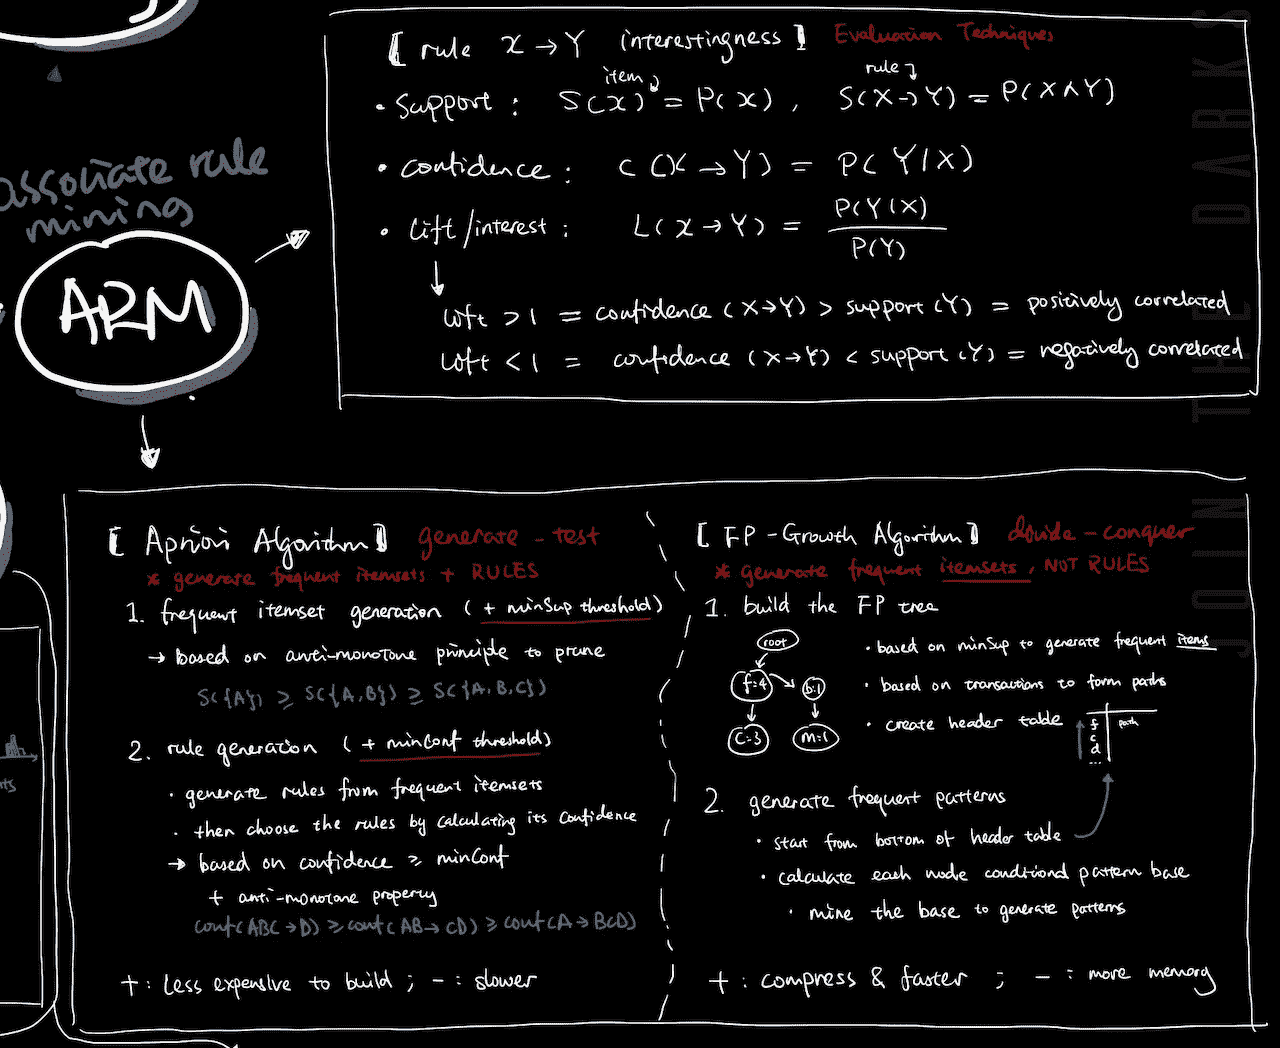 associate rule
mining
ARM
[ rule X → Y interestingness ] Evaluation Techniques
item
rule
• support : S(X) = P(X) , S(X→Y) = P(X∧Y)
• confidence : C(X → Y) = P(Y|X)
• lift/interest : L(X → Y) = P(Y|X)
P(Y)
lift > 1 = confidence (X→Y) > support (Y) = positively correlated
lift < 1 = confidence (X→Y) < support (Y) = negatively correlated
JOIN THE DARKS
[ Apriori Algorithm ] generate - test
* generate frequent itemsets + RULES
1. frequent itemset generation ( + minSup threshold )
→ based on anti-monotone principle to prune
S({A}) ≥ S({A,B}) ≥ S({A,B,C})
2. rule generation ( + minConf threshold )
• generate rules from frequent itemsets
• then choose the rules by calculating its confidence
→ based on confidence ≥ minConf
+ anti-monotone property
conf(ABC→D) ≥ conf(AB→CD) ≥ conf(A→BCD)
+ : less expensive to build ; - : slower
[ FP-Growth Algorithm ] divide - conquer
* generate frequent itemsets, NOT RULES
1. build the FP tree
root
f:4
b:1
c:3
m:1
• based on minSup to generate frequent items
• based on transactions to form paths
• create header table
path
f
c
d
...
2. generate frequent patterns
• start from bottom of header table
• calculate each node conditional pattern base
• mine the base to generate patterns
+ : compress & faster ; - : more memory